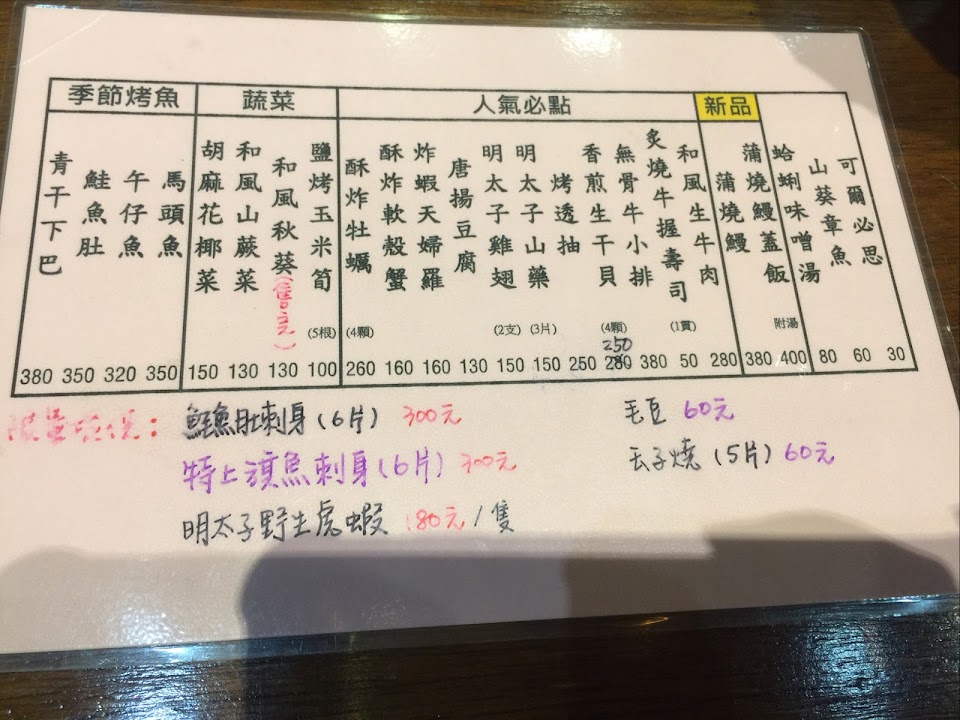 季節烤魚 蔬菜 人氣必點 新品
青干下巴
鮭魚肚
午仔魚
馬頭魚
胡麻花椰菜
和風山蕨菜
和風秋葵(售完)
鹽烤玉米筍 (5根)
酥炸牡蠣 (4顆)
酥炸軟殼蟹
炸蝦天婦羅
唐揚豆腐
明太子雞翅 (2支)
明太子山藥 (3片)
烤透抽
香煎生干貝 (4顆)
無骨牛小排
炙燒牛握壽司 (1貫)
和風生牛肉
蒲燒鰻
蒲燒鰻蓋飯 附湯
蛤蜊味噌湯
山葵章魚
可爾必思
250
380 350 320 350 150 130 130 100 260 160 160 130 150 150 250 280 380 50 280 380 400 80 60 30
鮭魚肚刺身(6片) 300元 毛豆 60元
特上旗魚刺身(6片) 300元 玉子燒(5片) 60元
明太子野生虎蝦 180元/隻